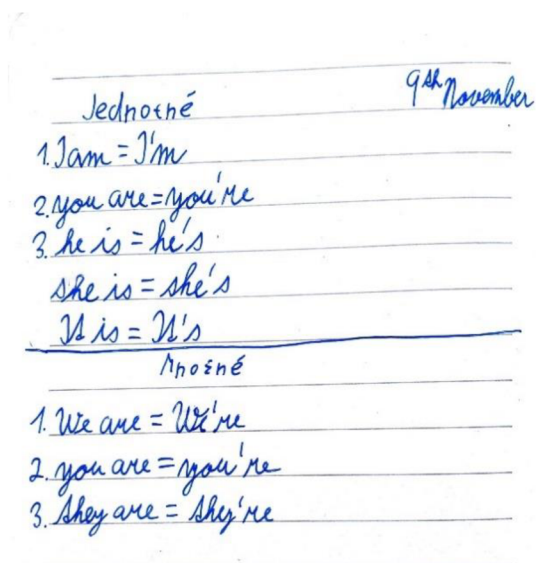 9th November
Jednotné
1. I am = I'm
2. you are = you're
3. he is = he's
she is = she's
It is = It's
Množné
1. We are = We're
2. you are = you're
3. they are = they're